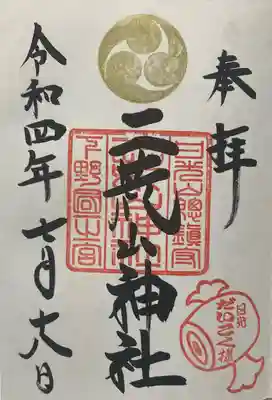 奉拝
日光山總鎮守
二荒山神社
下野國一之宮
令和四年七月十六日
日光
だいこく様